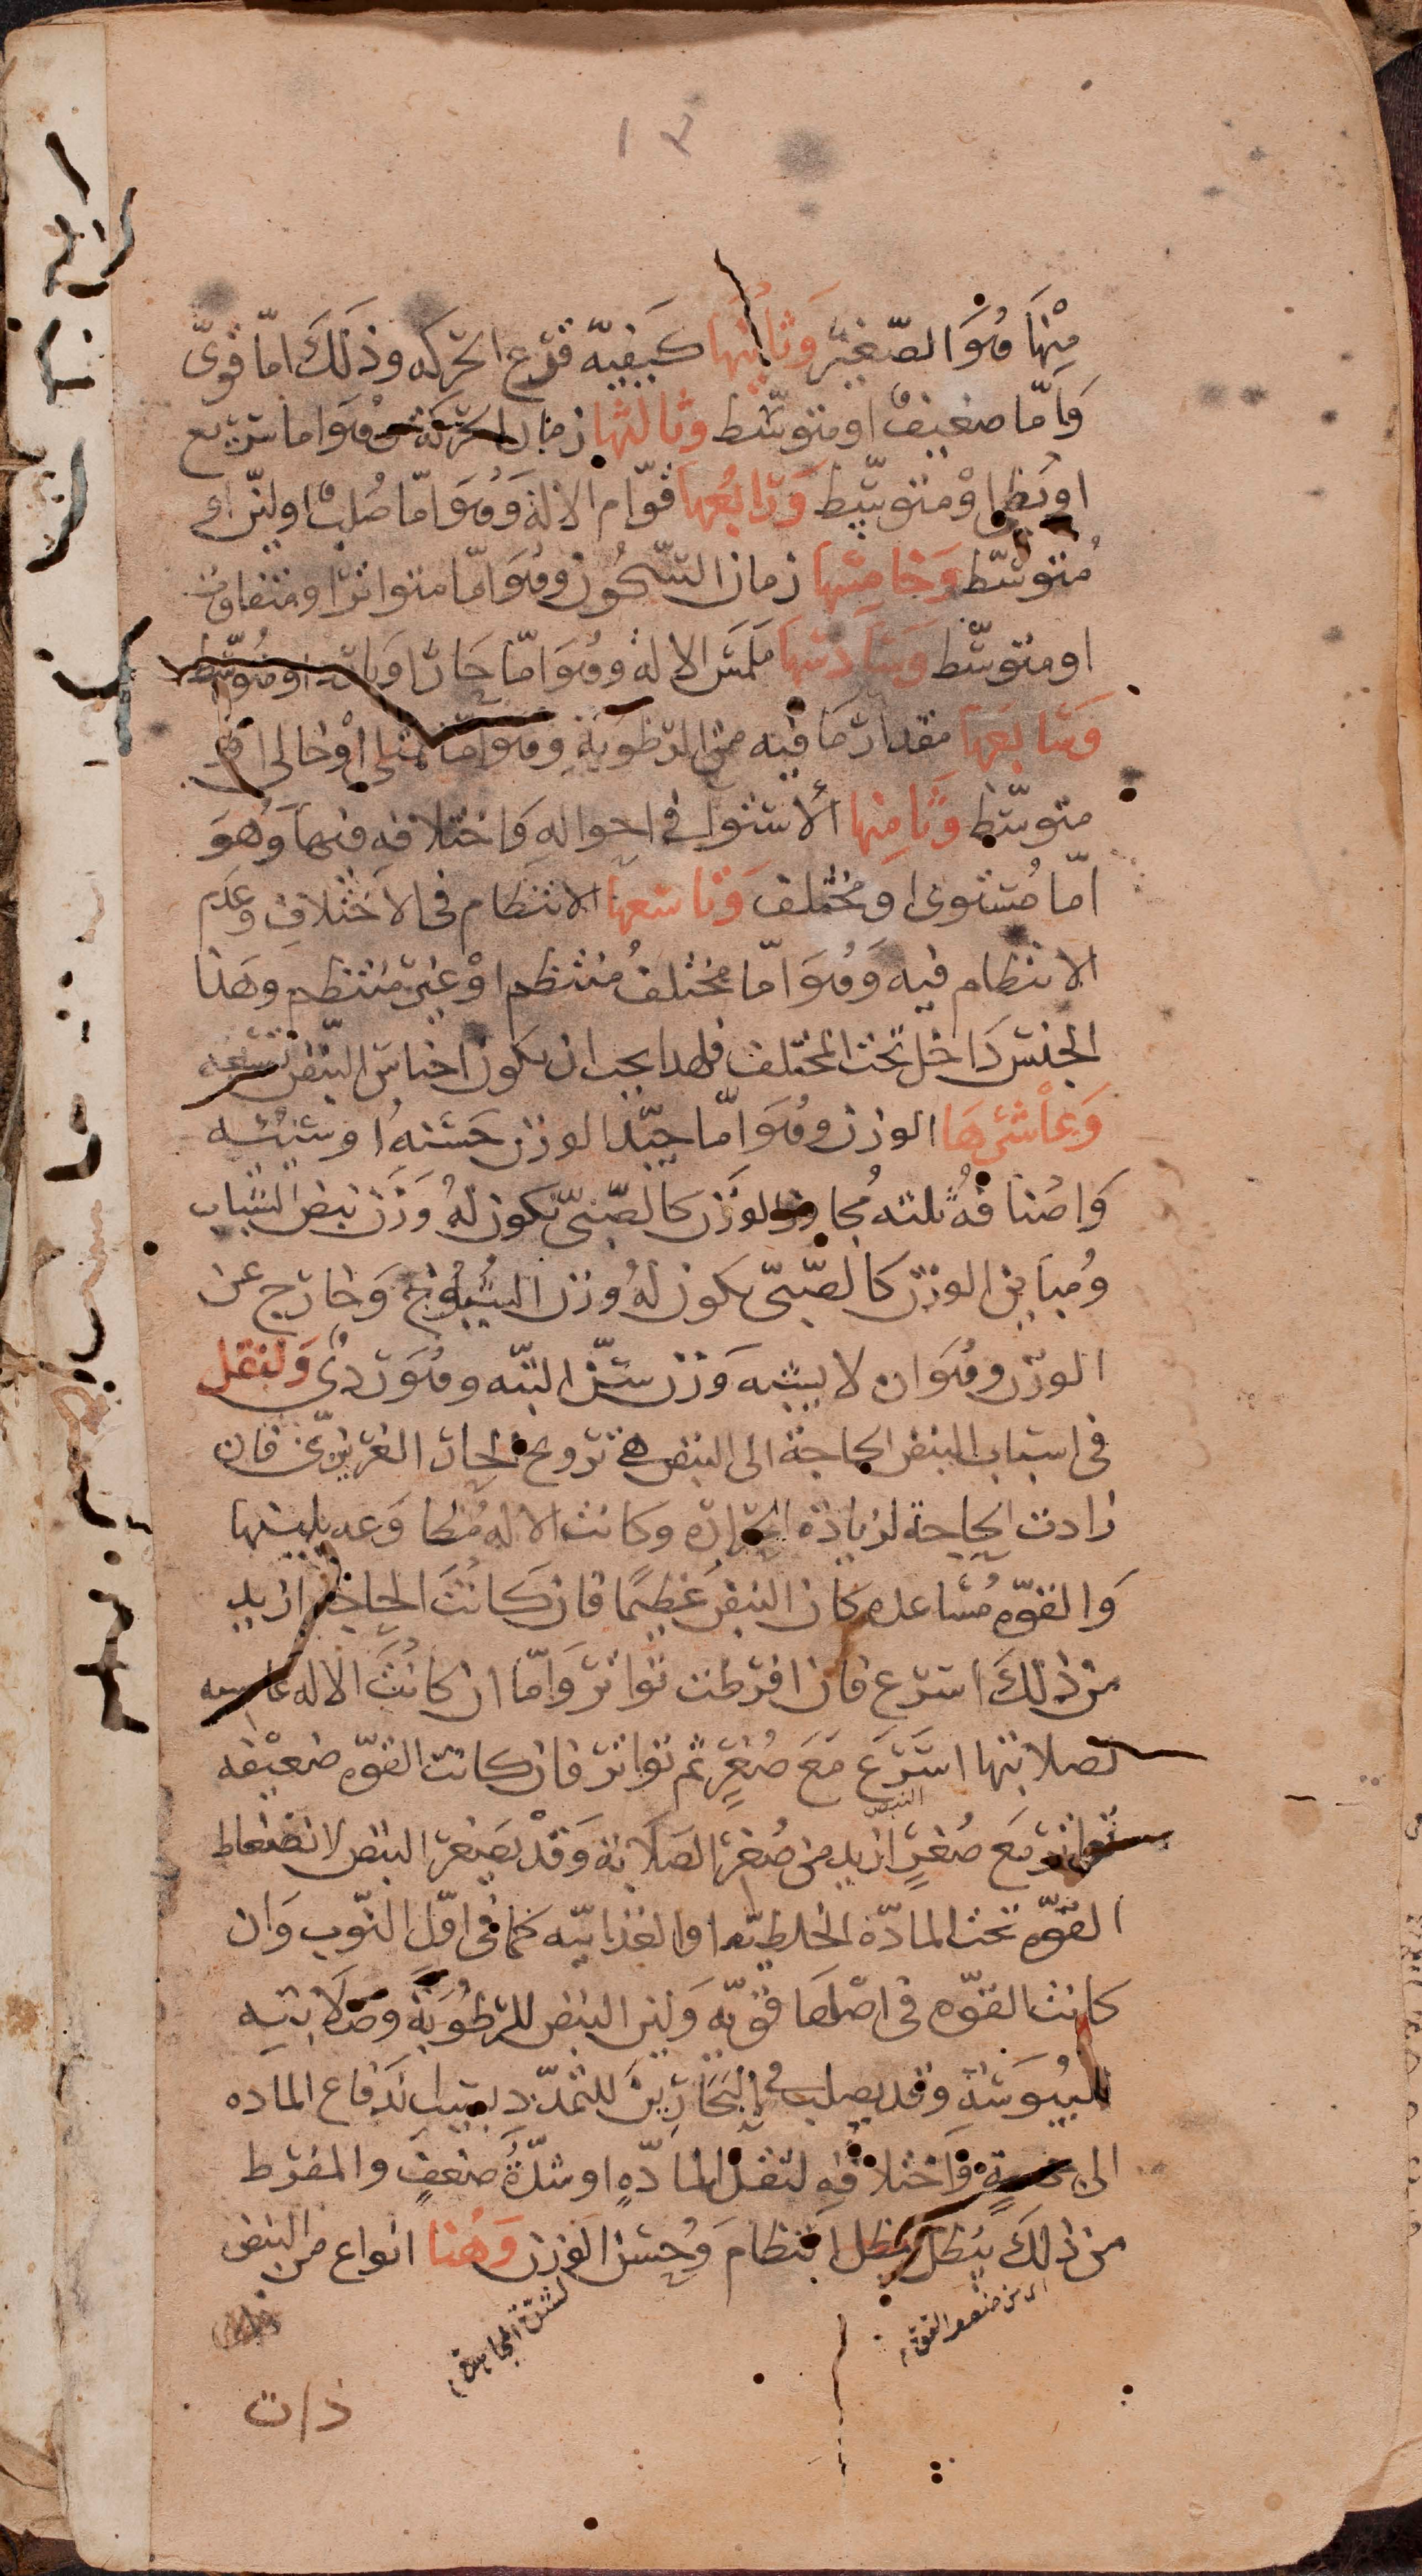 ١٣
مِنْهَا وهُوَ الصّغير وَثانيها كَيفيّة قرع الحركه وذلكَ امّا قوىّ
وَامّا ضعيفٌ او متوسّط وثالثها زمان الحركة وهوَ اما سريع
او بطى اوْ متوسّط وَرابعُها قوّام الالة وَهُوَ امّا صُلبٌ او ليّن او
مُتوسّط وَخامسها زمان السّكُون وهُوَ امّا متواترٌ او متفاوت
او متوسّط وَسَادسها مَلمَس الاله وهُوَ امّا حَارٌ او بارد او متُوسّط
وَسَابعَها مقدار مَا فيه من الرطوبَةِ وهُوَ امّا ممتلى اوْ خالى او
متوسّط وثامنها الاستوا فى احوالهِ وَاختلافه فيها وَهُوَ
امّا مُستوى او مختلف وَتاسعها الانتظام فى الاختلافِ وعَدم
الانتظام فيه وَهُوَ امّا مختلفٌ مُنتظم اوْ غير مُنتظم وهَذا
الجنس دَاخل تحت المختلف فلهذا يجب ان يكون اجناس النبض تسعه
وَعاشرهَا الوزن وهُوَ امّا جيّد الوزن حَسَنه او سيّئه
وَاصنافهُ ثلثه مُجاوز الوَزن كالصّبىّ يكون لهُ وَزن نبض الشباب
ومُباين الوزن كالصّبىّ يكون لهُ وزن الشيُوخ وَخارج عن
الوزن وهُوَ ان لا يشبه وَزن سنّ البتّه وهُوَ ردىٌ وَلنقل
فى اسباب النبض الحاجة الى النبض هى ترويح الحار الغريزىّ فان
زادت الحاجة لزيادة الحراره وكانت الاله مُطاوَعه بلينها
وَالقوّه مُسَاعده كان النبضُ عَظيمًا فان كانَت الحاجه ازيد
من ذلكَ اسرع فان افرطت تواتر وَامّا ان كانت الاله عاصيه
لصلابتها اسرَعَ مَعَ صُغرٍ ثم تواتر فان كانت القوّه ضعيفه
تواتر النبض مَع صُغرٍ ازيد من صُغر الصَلابة وَقدْ يَصغر النبض لانضغاط
القوّه تحت المادّة الخلطيّه او الغذائيّه كما فى اوّل النّوب وَان
كانت القوّه فى اصْلهَا قويّه وَلين النبض للرطُوبَة وَصَلابتِه
لليبُوسَةِ وقد يصلب فى البَحَارين للتمدّد بسبب اندفاع الماده
الى جهةٍ وَاختلافه لثقل المادّهِ او شدّةُ ضعفٍ والمفرط
من ذلكَ يُبطل الانتظام وَحُسْن الوزن وَهُنا انواع من النبض
لشدّة المجاهده
اى من ضعف القوّه
ذات